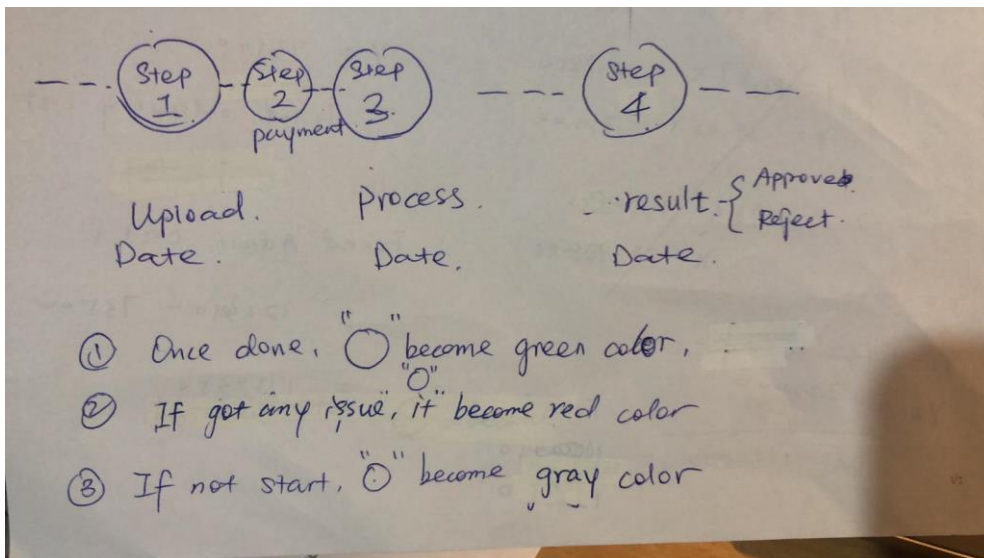 Step 1
Step 2
Step 3
Step 4
payment
Upload.
Process.
result.
Approved
Reject.
Date.
Date.
Date.
① Once done, "O" become green color,
"O"
② If got any issue, it become red color
③ If not start, "O" become gray color